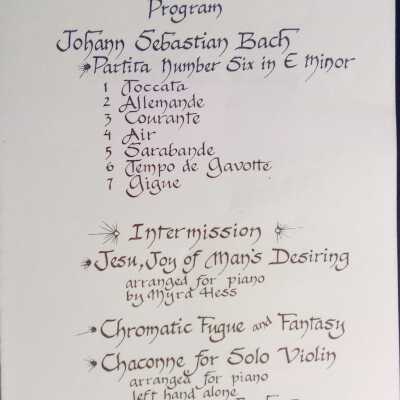 Program
Johann Sebastian Bach
Partita Number Six in E Minor
1 Toccata
2 Allemande
3 Courante
4 Air
5 Sarabande
6 Tempo de Gavotte
7 Gigue
Intermission
Jesu, Joy of Man's Desiring
arranged for piano
by Myra Hess
Chromatic Fugue and Fantasy
Chaconne for Solo Violin
arranged for piano
left hand alone